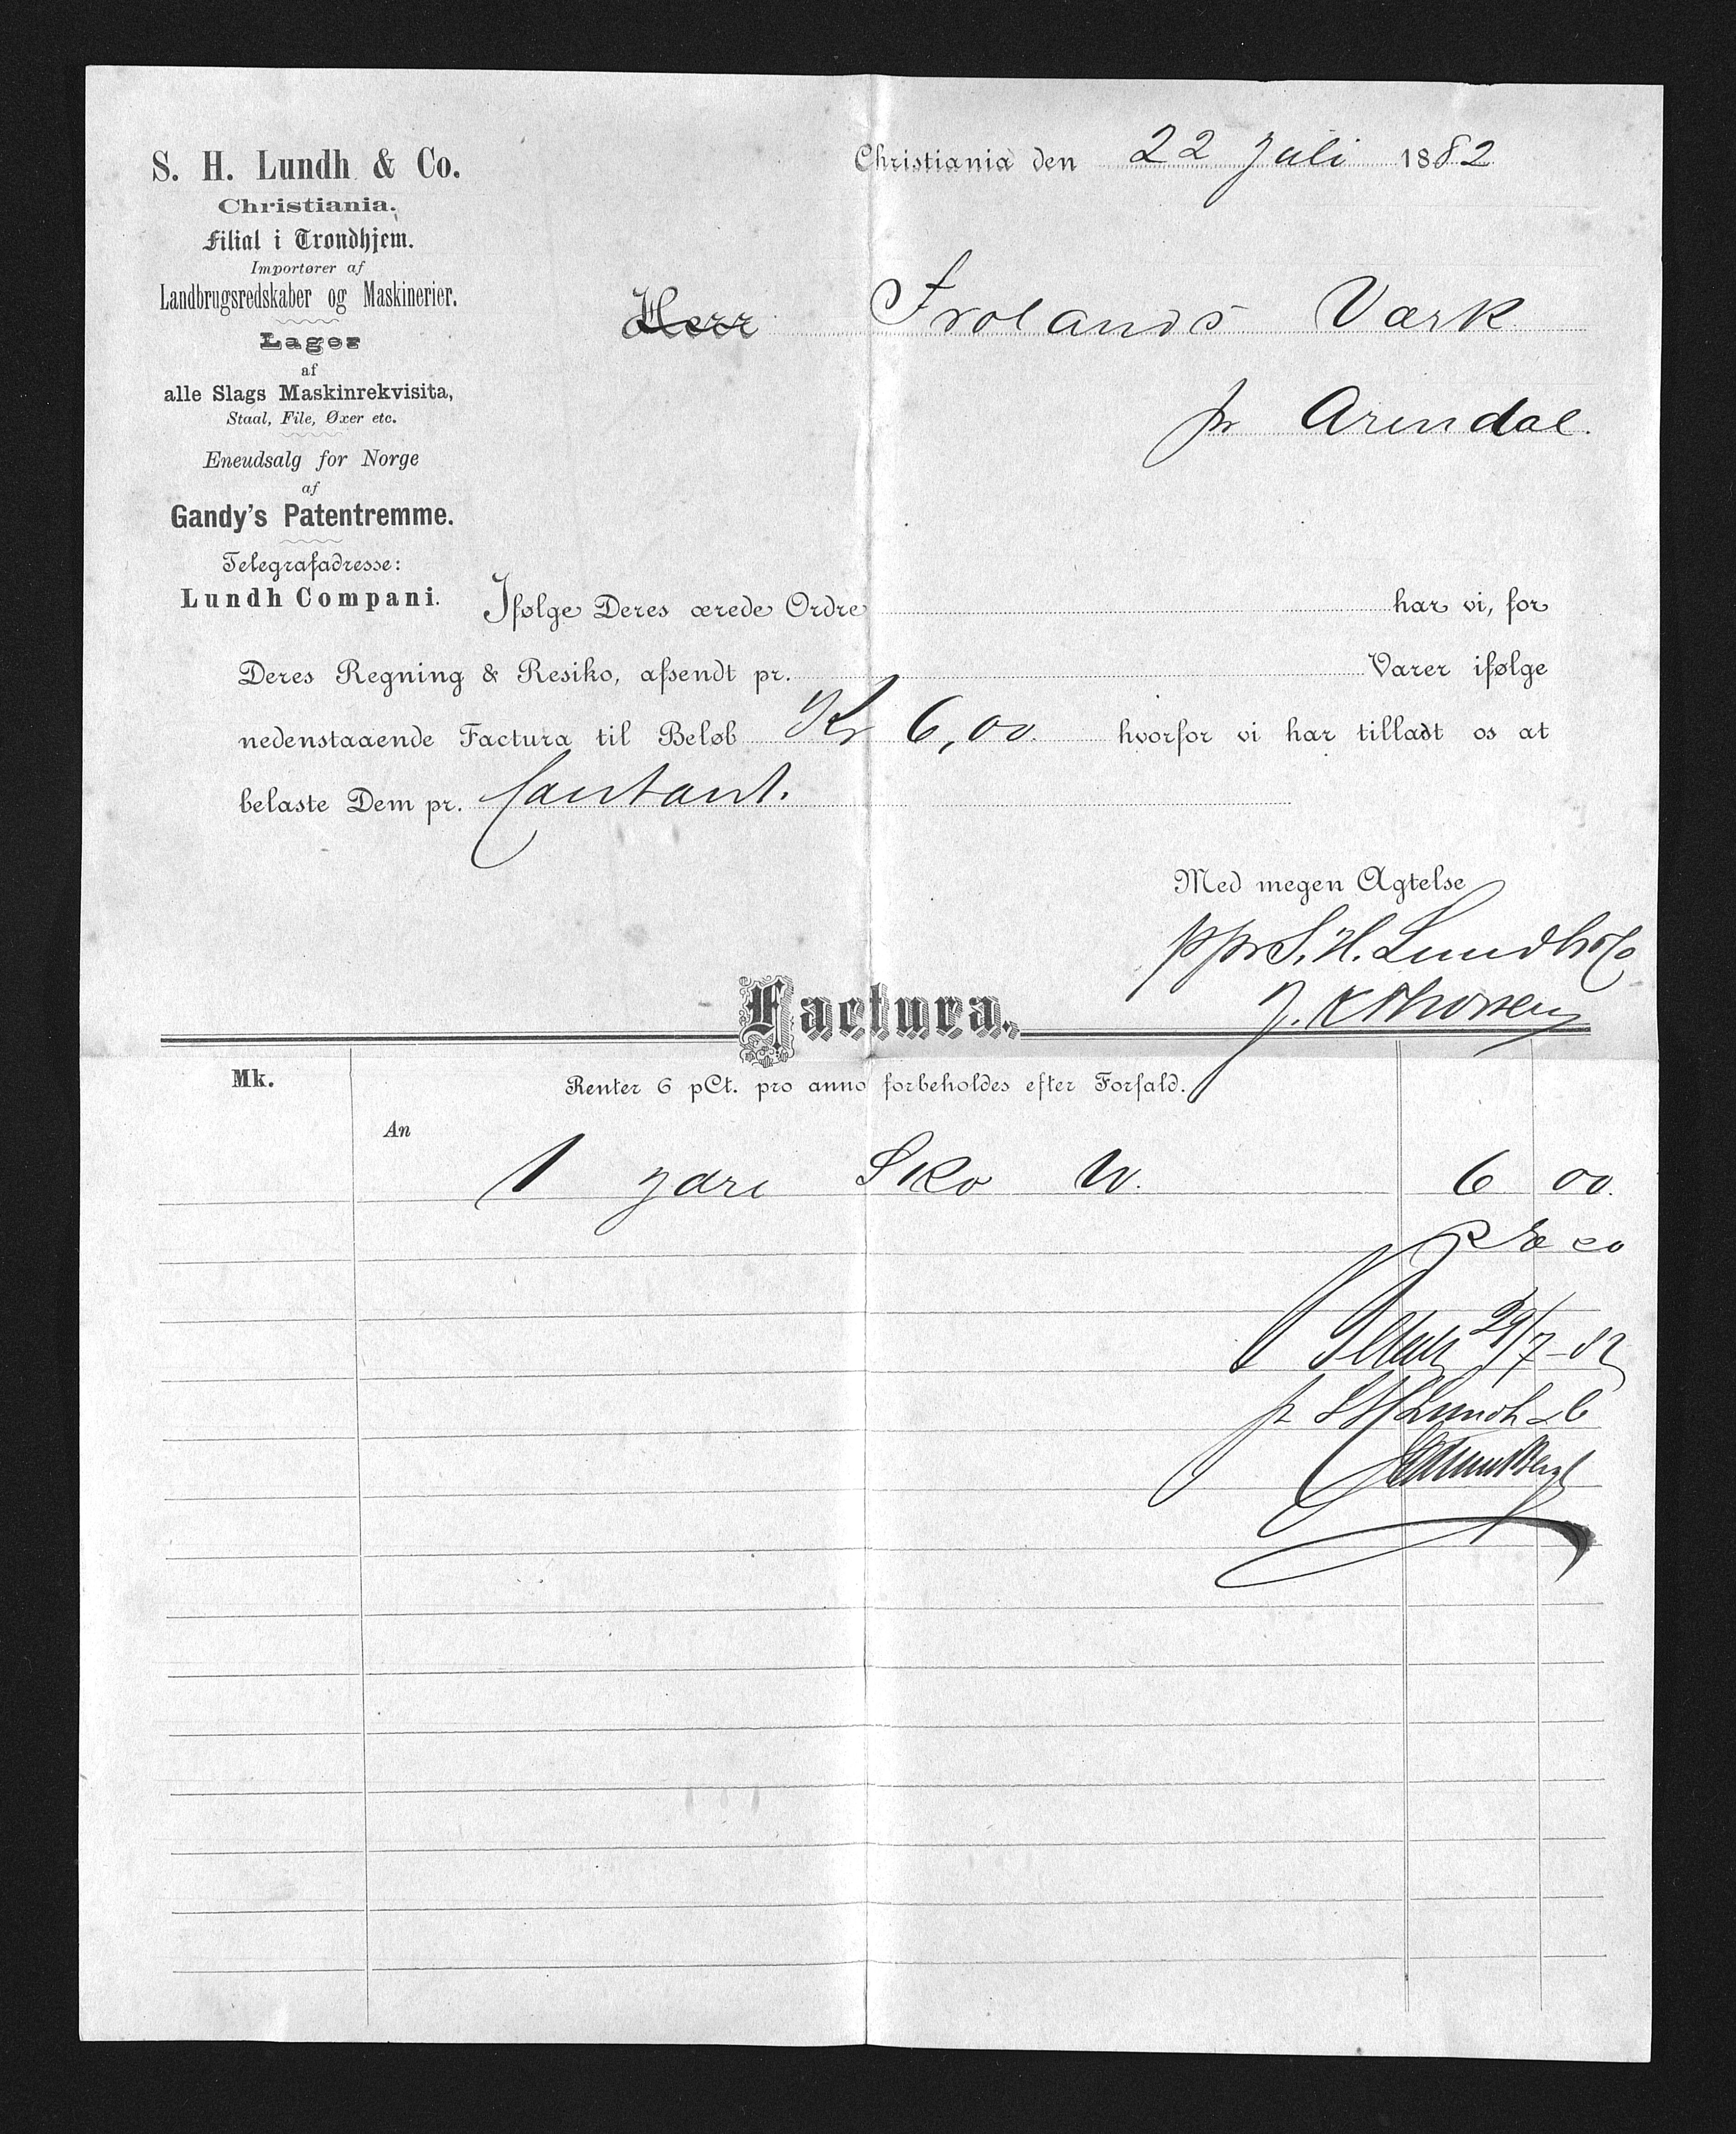 S. H. Lundh & Co.
Christiania.
Filial i Trondhjem.
Importører af
Landbrugsredskaber og Maskinerier.
Lager
af
alle Slags Maskinrekvisita,
Staal, File, Øxer etc.
Eneudsalg for Norge
af
Gandy's Patentremme.
Telegrafadresse:
Lundh Compani.
Christiania den 22 Juli 1882
Herr Frolands Værk
pr Arendal.
Ifølge Deres ærede Ordre har vi, for
Deres Regning & Resiko, afsendt pr. Varer ifølge
nedenstaaende Factura til Beløb Kr 6,00. hvorfor vi har tilladt os at
belaste Dem pr. Contant.
Med megen Agtelse
ppr S. H. Lundh & Co
Factura.
Mk.
Renter 6 pCt. pro anno forbeholdes efter Forfald.
An
1 ydre Sko W. 6 00.
29/7-82
p SH Lundh & C